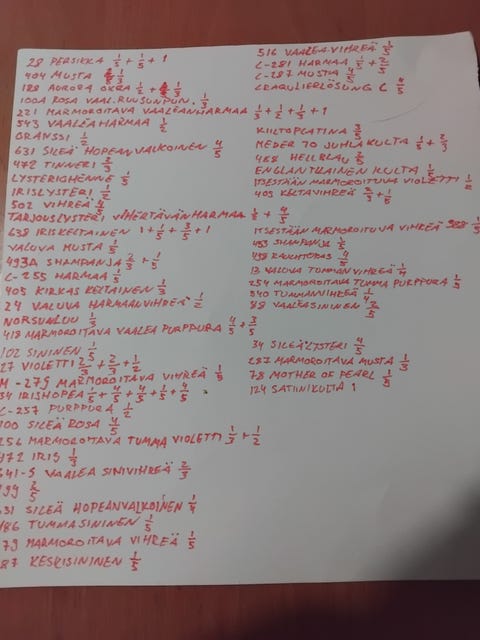 28 PERSIKKA 1/5 + 1/5 + 1
404 MUSTA 1/3
188 AURORA OKRA 1/2 + 1/3
100A ROSA VAAL.RUUSUNPUN. 1/3
221 MARMOROITAVA VAALEANHARMAA
543 VAALEAHARMAA 1/2
ORANSSI 1/2
631 SILEÄ HOPEANVALKOINEN 4/5
472 TINNERI 2/3
LYSTERIGHENNE 1/5
IRISLYSTERI 1/5
502 VIHREÄ
TARJOUSLYSTERI VIHERTÄVÄNHARMAA 1/5 + 4/5
638 IRISKELTAINEN 1 + 1/5 + 3/5 + 1
VALUVA MUSTA 1/5
493A SHAMPANJA 2/3 + 1/5
C-255 HARMAA 1/5
405 KIRKAS KELTAINEN 1/3
24 VALUVA HARMAANVIHREÄ 1/2
NORSUNLUU 1/3
418 MARMOROITAVA VAALEA PURPPURA 4/5 + 3/5
102 SININEN 1/5
27 VIOLETTI 2/3 + 2/3 + 1/2
M-279 MARMOROITAVA VIHREÄ 1/5
34 IRISHOPEA 1/5 + 4/5 + 4/5 + 1/5 + 4/5
C-257 PURPPURA 1/2
100 SILEÄ ROSA 4/5
256 MARMOROITAVA TUMMA VIOLETTI 1/3 + 1/2
472 IRIS 1/3
641-S VAALEA SINIVIHREÄ 2/3
199 2/5
631 SILEÄ HOPEANVALKOINEN 1/4
486 TUMMASININEN 1/5
79 MARMOROITAVA VIHREÄ 1/5
87 KESKISININEN 1/5
516 VAALEAVIHREÄ 1/5
C-281 HARMAA 1/5 + 2/5
C-287 MUSTA 4/5
CRAQULIERLÖSUNG C 4/5
1/3 + 1/2 + 1/3 + 1
KIILTOPLATINA 3/5
MEDER 70 JUHLAKULTA 1/5 + 2/3
468 HELLBLAU 2/5
ENGLANTILAINEN KULTA 1/5
ITSESTÄÄN MARMOROITUVA VIOLETTI 1/2
409 KELTAVIHREÄ 2/3 + 1/5
ITSESTÄÄN MARMOROITUVA VIHREÄ 1/5
493 SHAMPANJA 1/5
498 RAUCHTOPAS 4/5
13 VALUVA TUMMANVIHREÄ 1/4
254 MARMOROITAVA TUMMA PURPPURA 1/5
540 TUMMANVIHREÄ 1/4
88 VAALEASININEN 2/5
34 SILEÄLYSTERI 4/5
287 MARMOROITAVA MUSTA 1/3
78 MOTHER OF PEARL 1/5
124 SATIINIKULTA 1